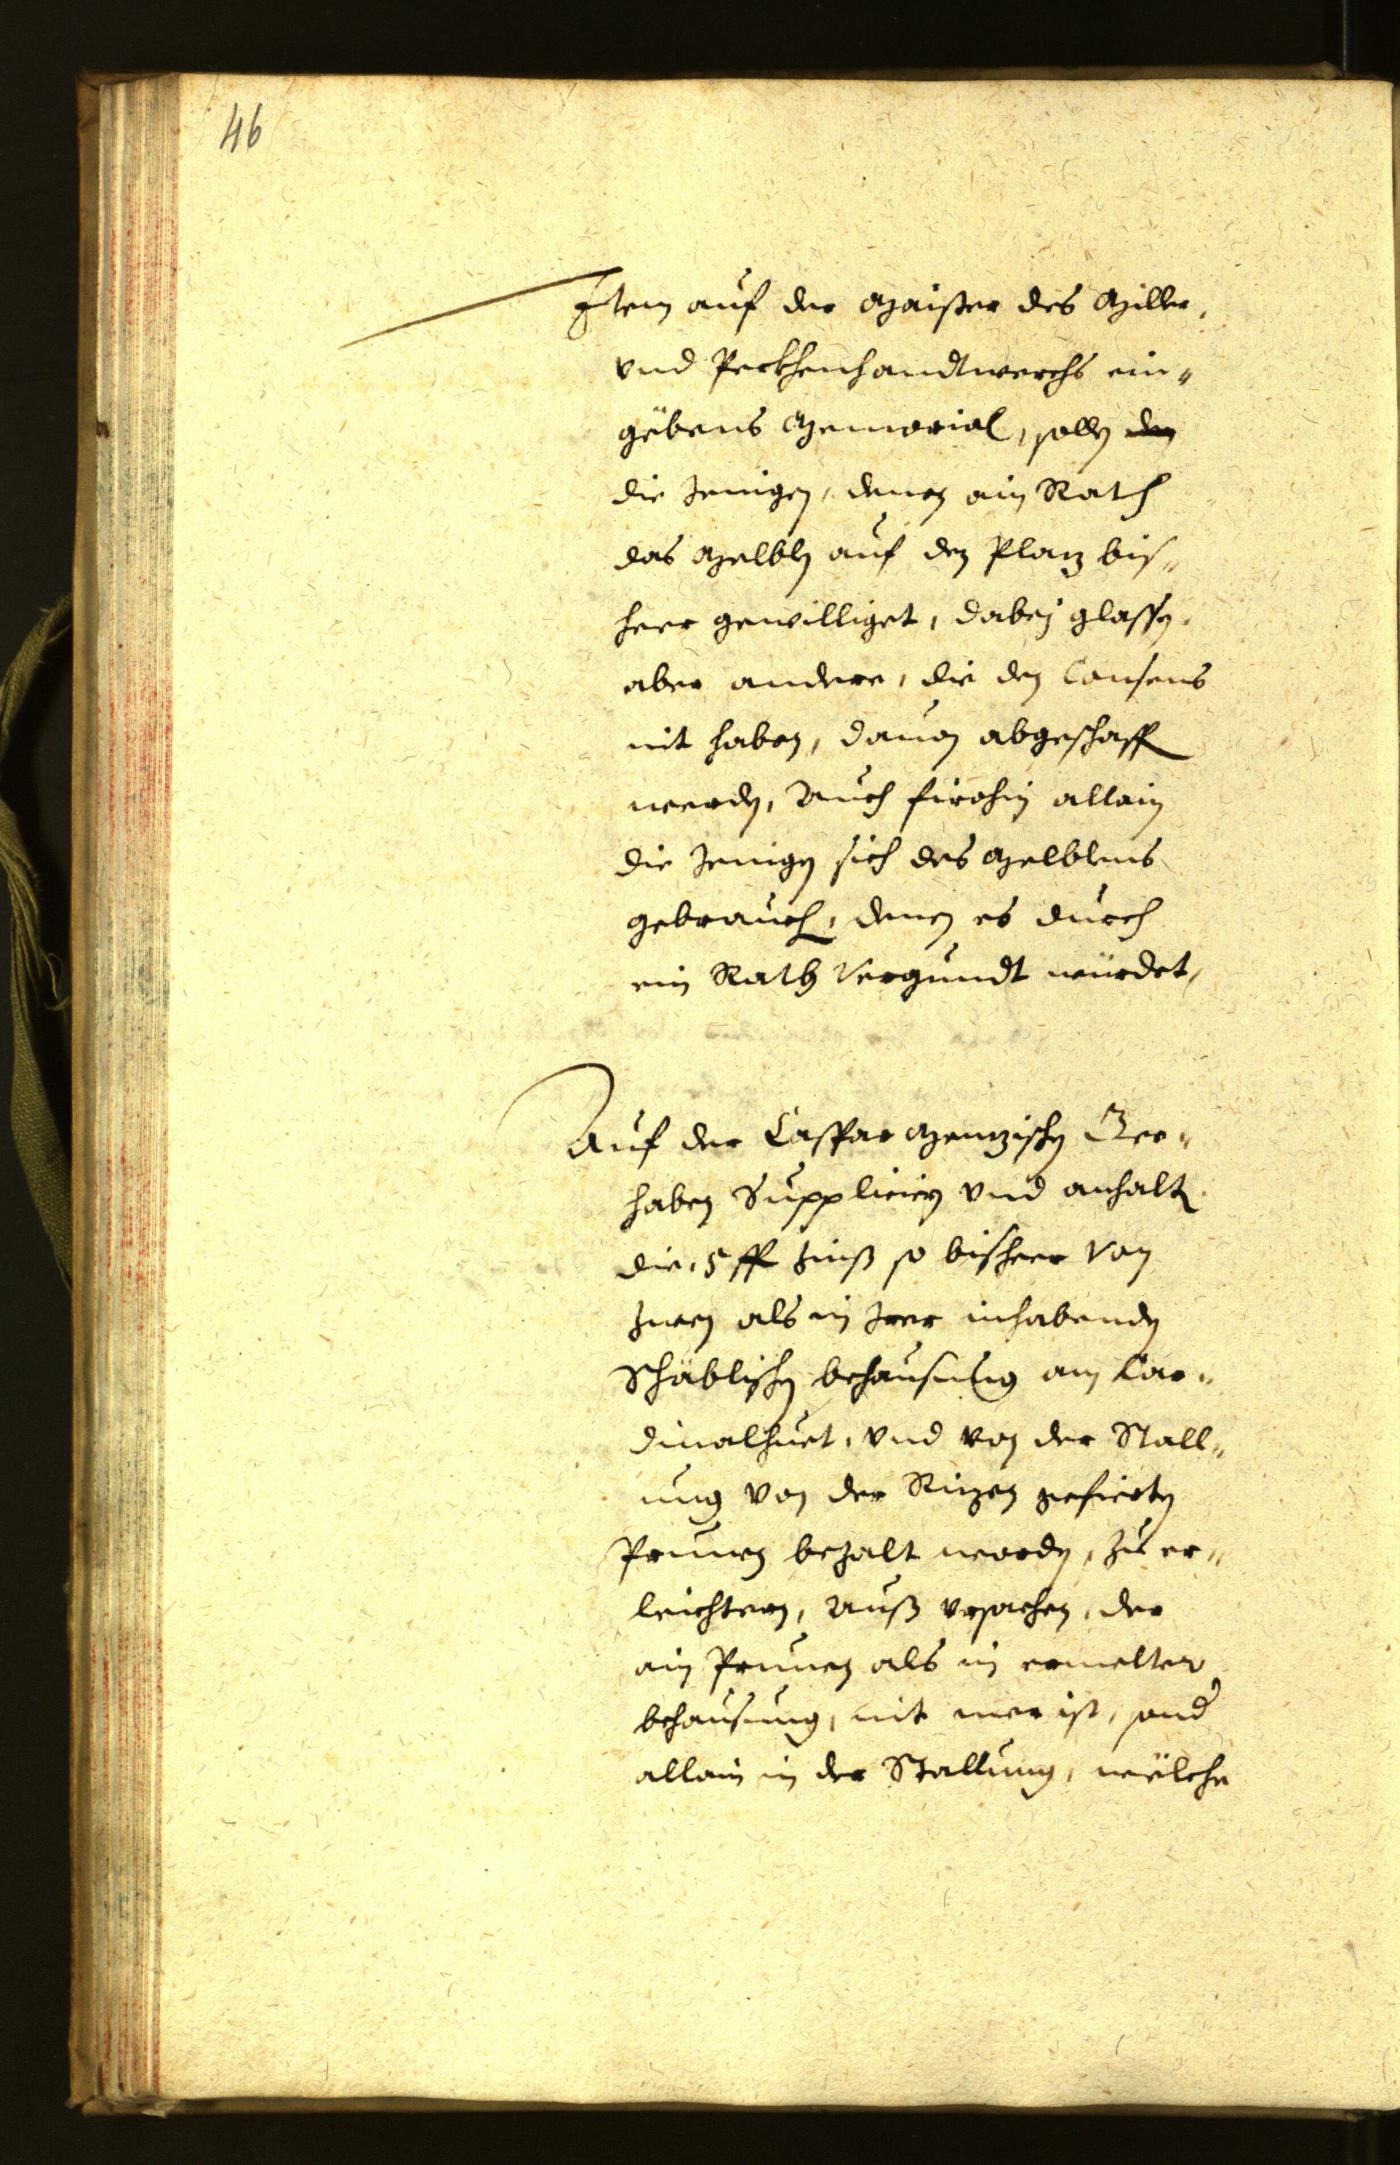 46
Item auf der Maister des Miller,
vnd Peckhenhandtwerchs ein¬
gëbens Memorial, solln den
die Jenigen, denen ain Rath
das Melbln auf den Plaz bis¬
heer gewilliget, dabej glassen.
aber andere, die den Consens
nit haben, dauon abgeschafft
werden, Auch firohin allain
die Jenigen sich des Melblens
gebrauch, denen es durch
ein Rath vergundt würdet,
Auf der Casspar Menzischen Ger¬
haben Supplicirn vnd anhalten
die 5 ff Zinß so bisheer von
Zween als in Jrer inhabenden
Schäblischen behausung am Car¬
dinalhuet, vnd von der Stall¬
ung von der Rizen gefierten
Prunen bezalt worden, zu er¬
leichtern, Auß vrsachen, der
ain Prunen als in ermelter
behausung, nit mer ist, sond
allain in der Stallung, wëlche